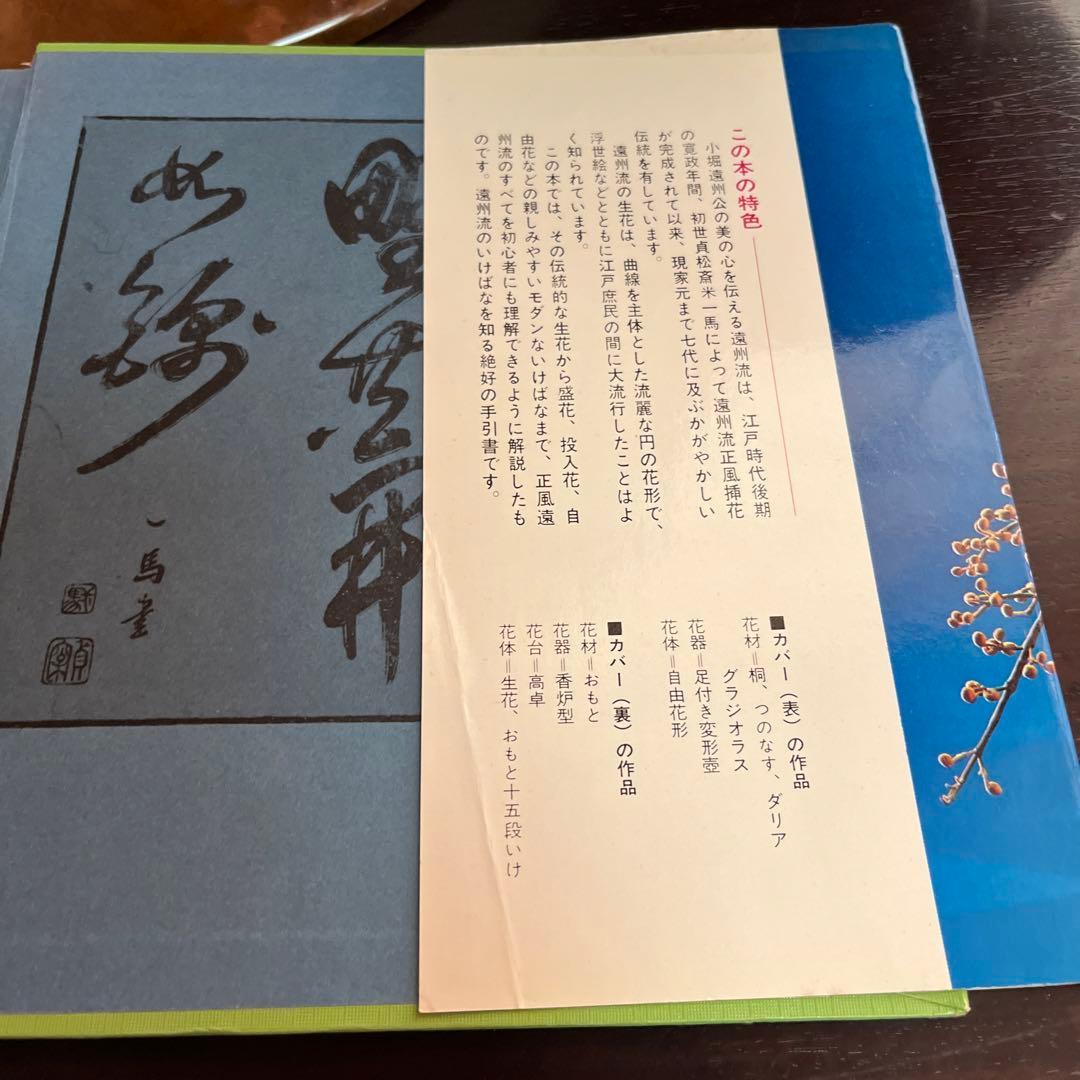 この本の特色
小堀遠州公の美の心を伝える遠州流は、江戸時代後期
の寛政年間、初世貞松斎米一馬によって遠州流正風挿花
が完成されて以来、現家元まで七代に及ぶかがやかしい
伝統を有しています。
遠州流の生花は、曲線を主体とした流麗な円の花形で、
浮世絵などとともに江戸庶民の間に大流行したことはよ
く知られています。
この本では、その伝統的な生花から盛花、投入花、自
由花などの親しみやすいモダンないけばなまで、正風遠
州流のすべてを初心者にも理解できるように解説したも
のです。遠州流のいけばなを知る絶好の手引書です。
■カバー(表)の作品
花材=桐、つのなす、ダリア
グラジオラス
花器=足付き変形壺
花体=自由花形
■カバー(裏)の作品
花材=おもと
花器=香炉型
花台=高卓
花体=生花、おもと十五段いけ
一馬書